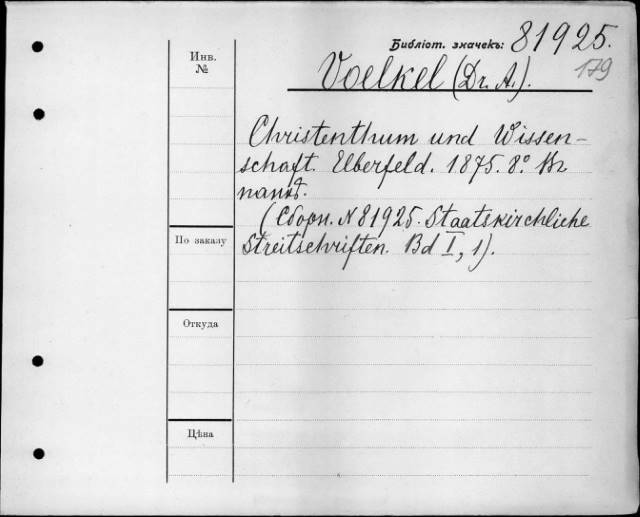 Библіот. значекъ: 81925.
179
Инв.
№
Voelkel (Dr. A.).
Christenthum und Wissen-
schaft. Elberfeld. 1875. 8º. Въ
папкѣ.
(Сборн. N 81925. Staatskirchliche
Streitschriften. Bd I, 1).
По заказу
Откуда
Цѣна